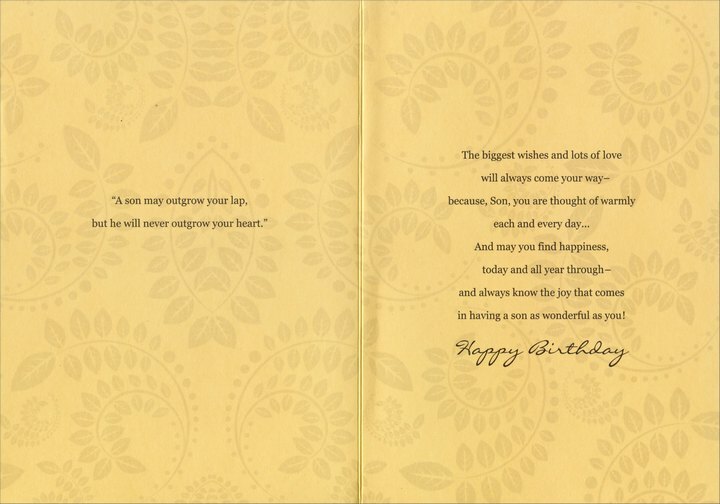 “A son may outgrow your lap,
but he will never outgrow your heart.”
The biggest wishes and lots of love
will always come your way–
because, Son, you are thought of warmly
each and every day...
And may you find happiness,
today and all year through–
and always know the joy that comes
in having a son as wonderful as you!
Happy Birthday